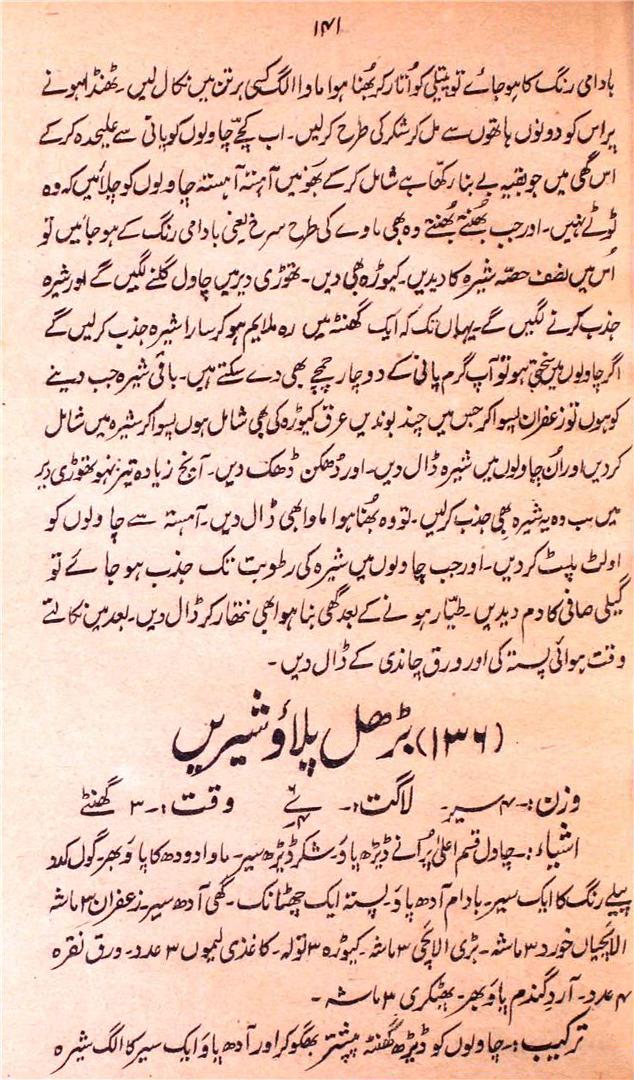 ۱۴۱
بادامی رنگ کا ہو جائے تو پتیلی کو اُتار کر بھُنا ہوا ماوا الگ کسی برتن میں نکال لیں۔ ٹھنڈا ہونے
پر اس کو دونوں ہاتھوں سے مل کر شکر کی طرح کر لیں۔ اب کچّے چاولوں کو پانی سے علیحدہ کر کے
اس گھی میں جو بقیہ بے بنا رکھّا ہے شامل کر کے بھونیں آہستہ آہستہ چاولوں کو چلائیں کہ وہ
ٹوٹے نہیں۔ اور جب بھُنتے بھُنتے وہ بھی ماوے کی طرح سرخ یعنی بادامی رنگ کے ہو جائیں تو
اُس میں نصف حصّہ شیرہ کا دیدیں۔ کیوڑہ بھی دیں۔ تھوڑی دیر میں چاول گلنے لگیں گے اور شیرہ
جذب کرنے لگیں گے۔ یہاں تک کہ ایک گھنٹہ میں وہ ملایم ہو کر سارا شیرہ جذب کر لیں گے
اگر چاولوں میں سختی ہو تو آپ گرم پانی کے دو چار چمچے بھی دے سکتے ہیں۔ باقی شیرہ جب دینے
کو ہوں تو زعفران پسوا کر جس میں چند بوندیں عرق کیوڑہ کی بھی شامل ہوں پسوا کر شیرہ میں شامل
کر دیں اور اُن چاولوں میں شیرہ ڈال دیں۔ اور ڈھکن ڈھک دیں۔ آنچ زیادہ تیز نہو تھوڑی دیر
میں سب وہ یہ شیرہ بھی جذب کر لیں۔ تو وہ بھُنا ہوا ماوا بھی ڈال دیں۔ آہستہ سے چاولوں کو
اولٹ پلٹ کر دیں۔ اور جب چاولوں میں شیرہ کی رطوبت تک جذب ہو جائے تو
گیلی صافی کا دم دیدیں۔ طیّار ہونے کے بعد گھی بنا ہوا بھی نتھار کر ڈال دیں۔ بعد میں نکالتے
وقت ہوائی پستہ کی اور ورق چاندی کے ڈال دیں۔
(۱۳۶) بڑھل پلاؤ شیریں
وزن:۔ ۴ سیر۔ لاگت:۔ وقت:۔ ۳ گھنٹے
اشیاء:۔ چاول قسم اعلیٰ پُرانے ڈیڑھ پاؤ۔ شکر ڈیڑھ سیر۔ ماوا دودھ کا پاؤ بھر۔ گول کدو
پیلے رنگ کا ایک سیر۔ بادام آدھ پاؤ۔ پستہ ایک چھٹانک۔ گھی آدھ سیر۔ زعفران ۳ ماشہ
الائچیاں خورد ۳ ماشہ۔ بڑی الائچی ۳ ماشہ۔ کیوڑہ ۳ تولہ۔ کاغذی لیموں ۳ عدد۔ ورق نقرہ
۴ عدد۔ آردِ گندم پاؤ بھر۔ پھٹکری ۳ ماشہ۔
ترکیب:۔ چاولوں کو ڈیڑھ گھنٹہ پیشتر بھگو کر اور آدھ پاؤ ایک سیر کا الگ شیرہ